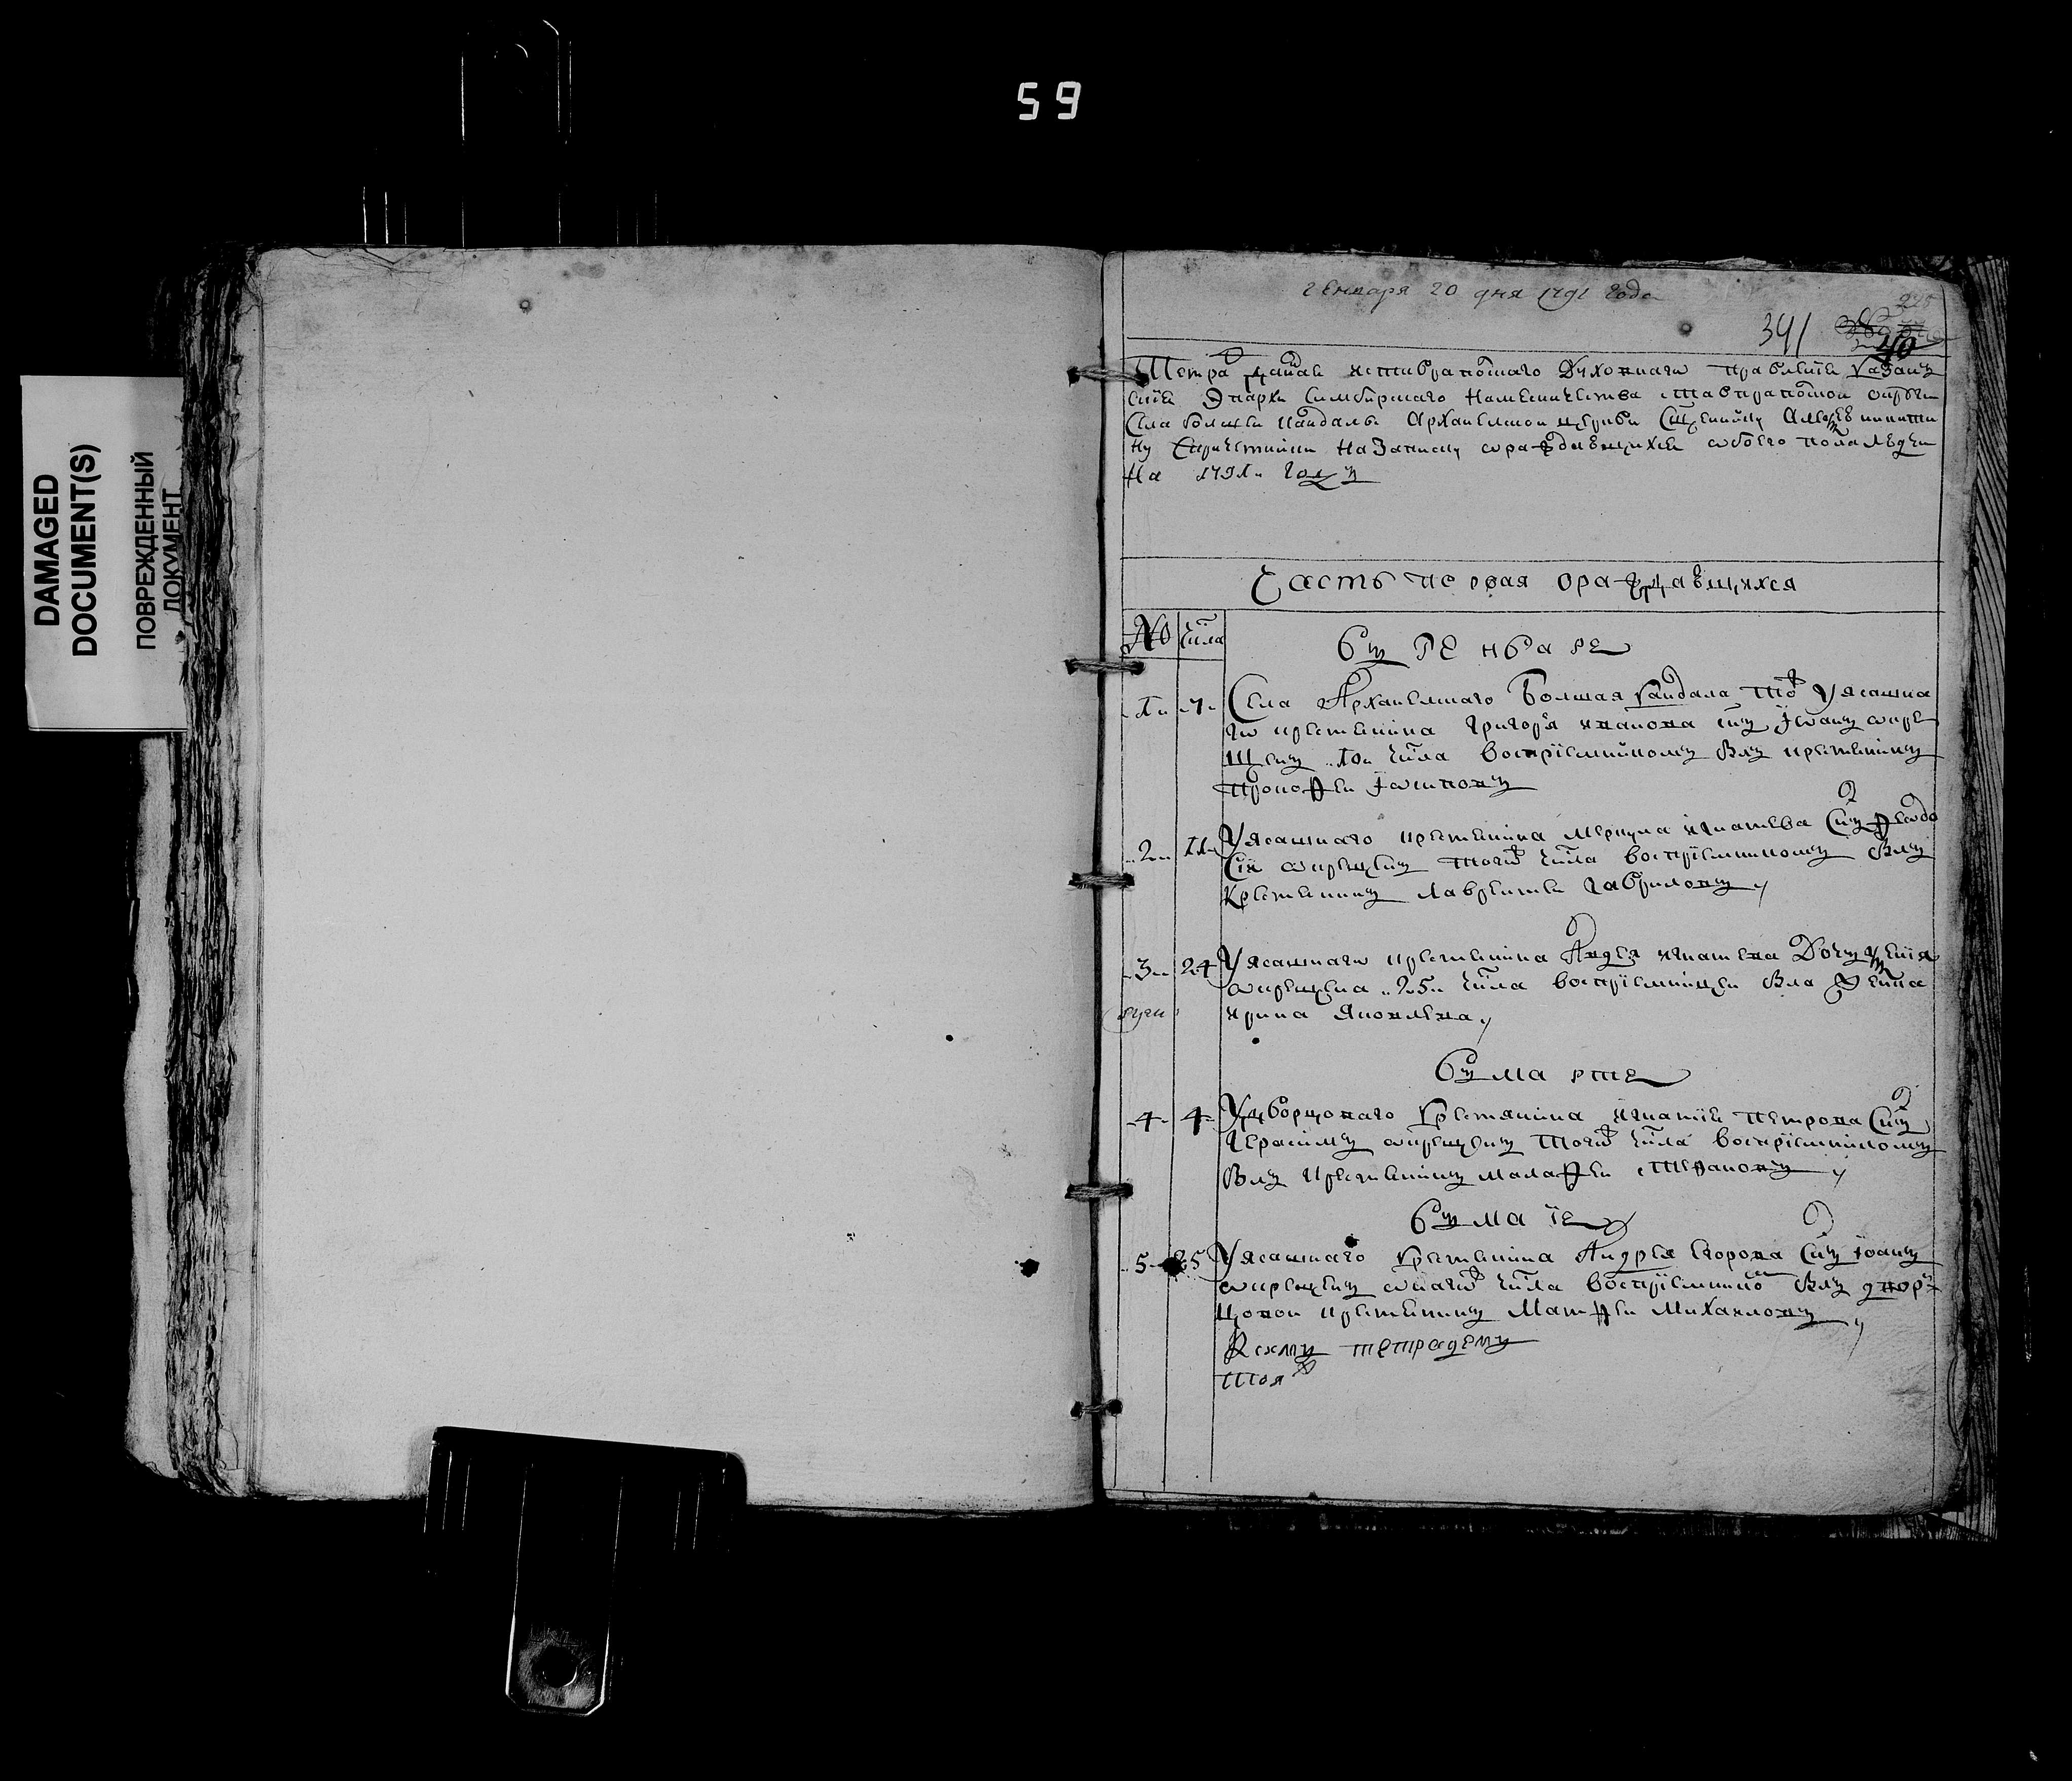 59
DAMAGED
DOCUMENT(S)
ПОВРЕЖДЕННЫЙ
ДОКУМЕНТ
Генваря 20 дня 1791 года
341
40
Тетрадь данная ис Ставрапольскаго Духовнаго правления Казанъ
ския Эпархи Синбирскаго Наместничества Ставрапольской округи
Села Болшей Кандалы Архангелской церкви Священнику Алексею Никити
ну с причетники на записку о раждающихся обоего пола людей
На 1791 Годъ
Часть первая о раждавшихся
№ числа
Въ Генваре
1 7 Села Архангелскаго Болшая Кандала тожъ У ясашна
го крестьянина Григорья Иванова сынъ Iоаннъ окре
щенъ 10 числа восприемникомъ былъ крестьянинъ
Прокофеи
2 11 У ясашнаго крестьянина Меркула Игнатьева Сынъ Феодо
сiи окрещенъ тогожъ числа восприемникомъ былъ
Крестьянинъ Лаврентеи Гавриловъ
3 24 У ясашнаго крестьянина Андрея Игнатьева Дочь
окрещена 25 числа восприемницеи была девка
Ирина Яковлева
Въ Марте
4 4 У дворцоваго крестьянина Игнатия Петрова Сынъ
Герасимъ окрещенъ тогожъ числа восприемникомъ
былъ крестьянинъ Малафеи Степановъ
Въ Маiе
5 25 У ясашнаго крестьянина Андрея Егорова сынъ Iоаннъ
окрещенъ онагожъ числа восприемником былъ дворъ
цовои крестьянинъ Матфеи Михаиловъ